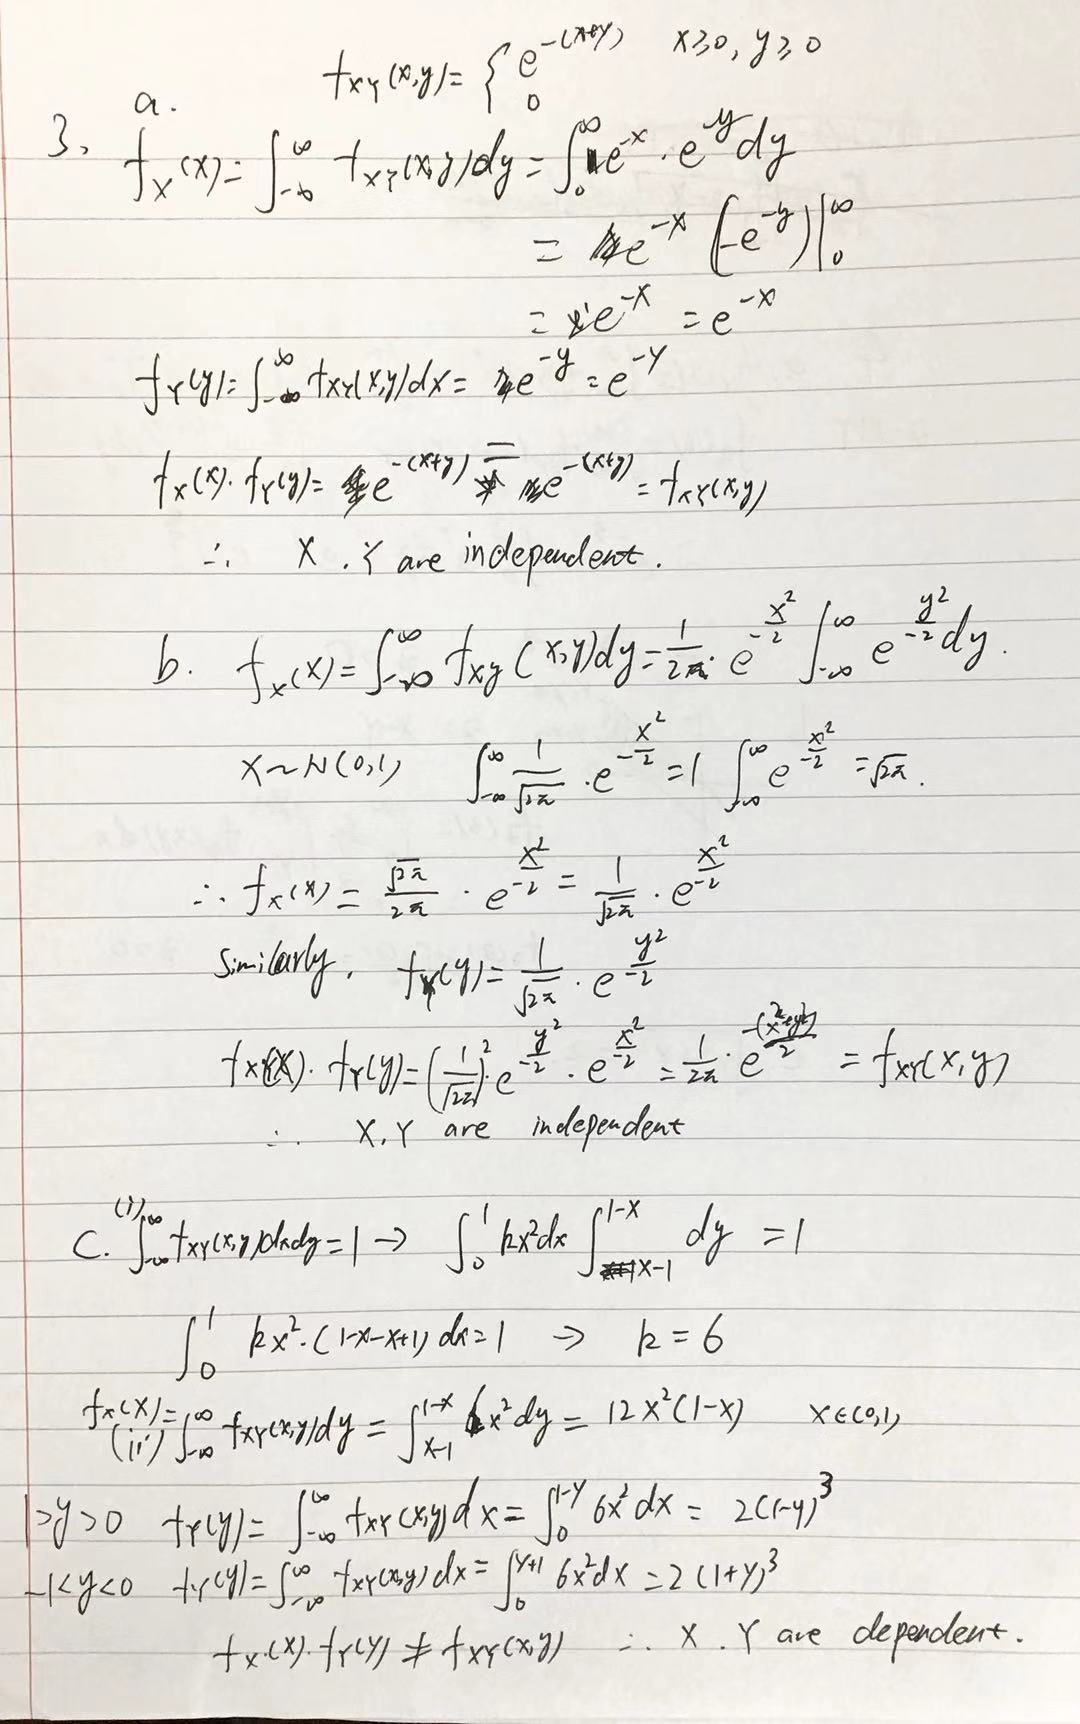 f_XY(x,y)= { e^-(x+y) x≥0, y≥0
0
a.
3. f_X(x)= ∫_-∞^∞ f_XY(x,y)dy = ∫_0^∞ e^-x · e^-y dy
= e^-x (-e^-y)|_0^∞
= e^-x = e^-x
f_Y(y)= ∫_-∞^∞ f_XY(x,y)dx = e^-y = e^-y
f_X(x)· f_Y(y)= e^-(x+y) = e^-(x+y) = f_XY(x,y)
∴ X . Y are independent.
b. f_X(x)= ∫_-∞^∞ f_XY(x,y)dy = 1/2π · e^-x²/2 ∫_-∞^∞ e^-y²/2 dy.
X~N(0,1) ∫_-∞^∞ 1/√2π · e^-x²/2 =1 ∫_-∞^∞ e^-x²/2 =√2π.
∴ f_X(x)= √2π/2π · e^-x²/2 = 1/√2π · e^-x²/2
Similarly, f_Y(y)= 1/√2π · e^-y²/2
f_X(x)· f_Y(y)=(1/√2π)² · e^-y²/2 · e^-x²/2 = 1/2π · e^-(x²+y²)/2 = f_XY(x,y)
∴ X,Y are independent
C. (i) ∫_-∞^∞ f_XY(x,y)dxdy =1 → ∫_0^1 kx²dx ∫_x-1^1-x dy =1
∫_0^1 kx²·(1-x-x+1) dx=1 → k=6
f_X(x)=
(ii) ∫_-∞^∞ f_XY(x,y)dy = ∫_x-1^1-x 6x²dy = 12x²(1-x) x∈(0,1)
1>y>0 f_Y(y)= ∫_-∞^∞ f_XY(x,y)dx = ∫_0^1-y 6x²dx = 2(1-y)³
-1<y<0 f_Y(y)= ∫_-∞^∞ f_XY(x,y)dx = ∫_0^y+1 6x²dx =2(1+y)³
f_X(x)·f_Y(y) ≠ f_XY(x,y) ∴ X . Y are dependent.